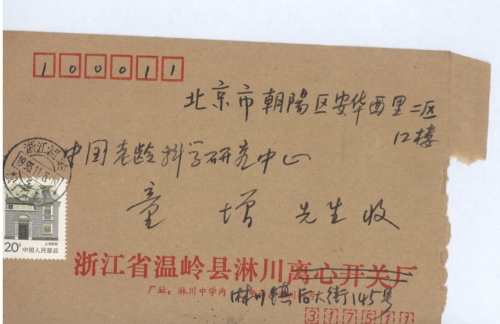 100011
北京市朝陽区安华西里二区
12楼
中国老龄科学研究中心
童增 先生 收
浙江温岭
20分 中国人民邮政
浙江省温岭县淋川离心开关厂
厂址：淋川中学内
淋川镇后大街145号
317511